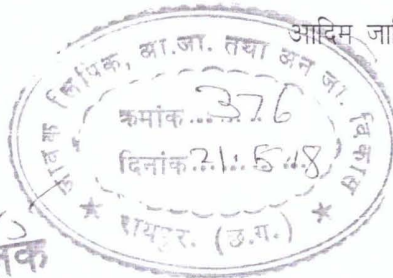 आदिम जा
आवक लिपिक, आ.जा. तथा अन जा. विकास
क्रमांक.....376
दिनांक.21.:.5.:.18.
★ रायपुर. (छ.ग.) ★